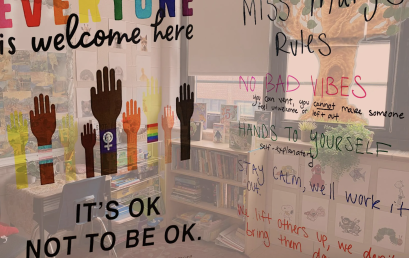 EVERYONE
is welcome here
IT'S OK
NOT TO BE OK.
Miss
Rules
NO BAD VIBES
you can vent, you cannot make someone
feel unwelcome or left out
HANDS TO YOURSELF
self-explanatory
STAY CALM, we'll work it
out.
We lift others up, we don't
bring them